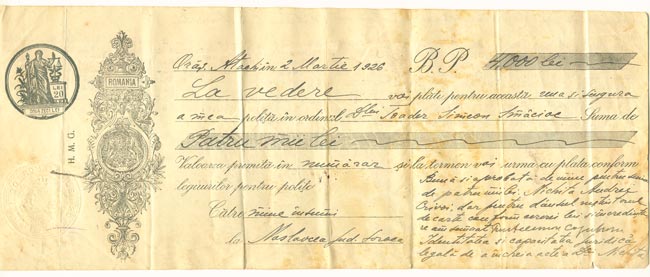 ROMANIA
LEI
20
H. M. G.
Oraș Atachi in 2 Martie 1926 B. P. 4000 lei
La vedere voi plăti pentru aceasta una si singura
a mea poliță în ordinul Dlui Toader Simeon Smăcioc Suma de
Patru mii lei
Valoarea primită în numărar și la termen voi urma cu plata conform
legiuirilor pentru polițe
Către mine insumi
la Naslavcea jud. Soroca
Bună si aprobată de mine pentru suma
de patru mii lei. Nichita Andrei
Crivoi, dar pentru dansul nestiutorul
de carte
Identitatea si capacitatea juridică
legală de a incheia acte a Dlui